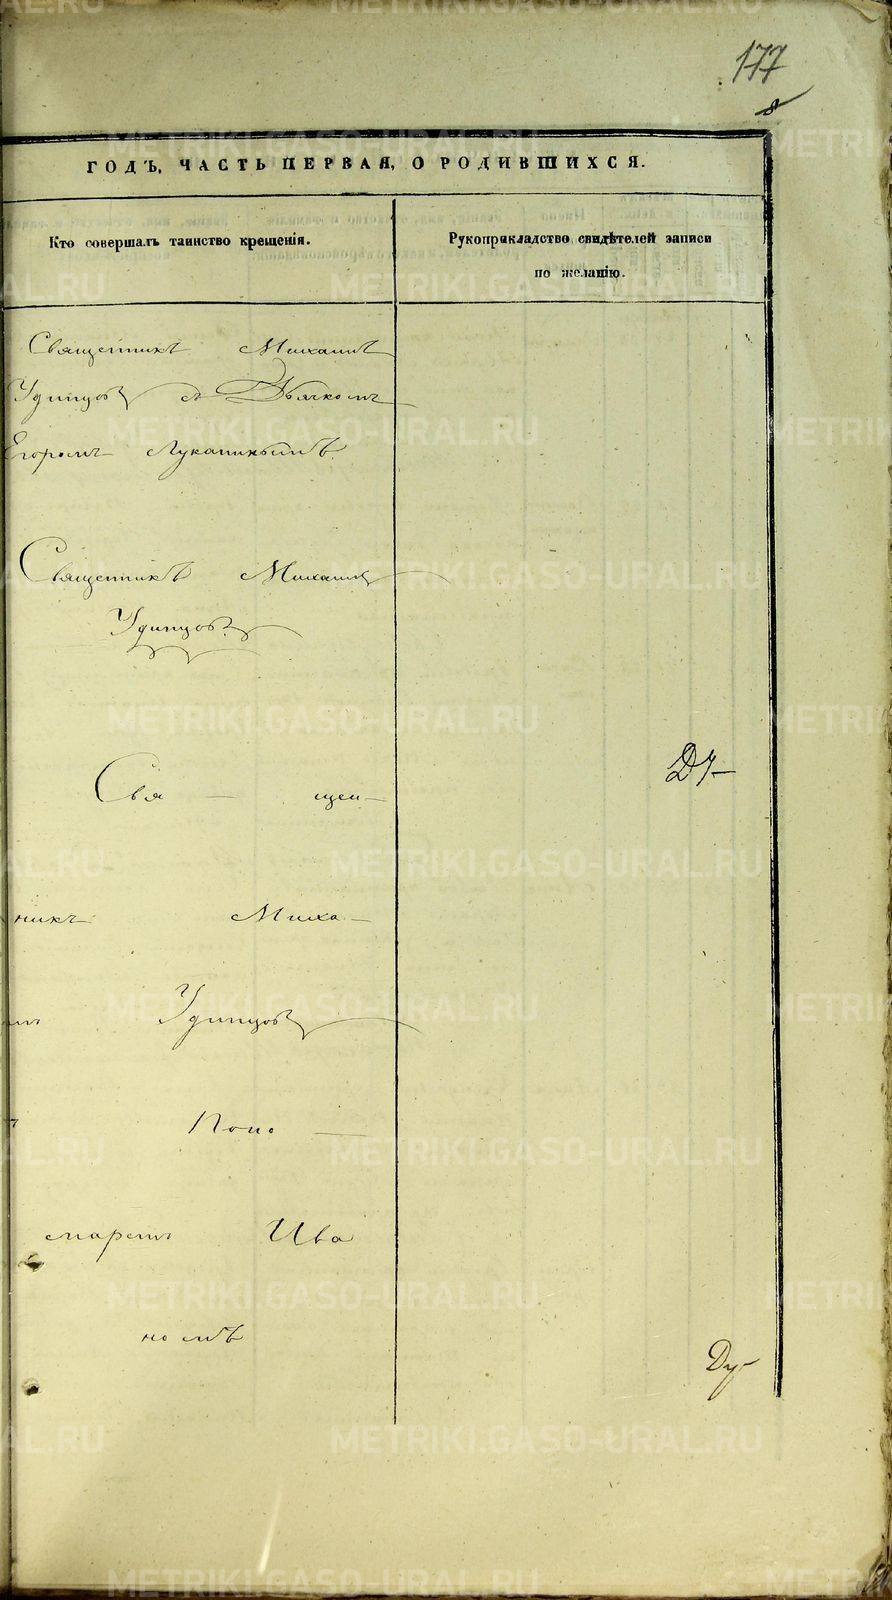 177
8
ГОДЪ, ЧАСТЬ ПЕРВАЯ, О РОДИВШИХСЯ.
Кто совершалъ таинство крещенія.
Рукоприкладство свидѣтелей записи
по желанію.
Священникъ Михаилъ
Удинцовъ съ Дьячкомъ
Егоромъ Лукапинымъ
Священникъ Михаилъ
Удинцовъ.
Свя – щен –
никъ Миха –
илъ Удинцовъ
Поно –
маремъ Ива
номъ
Ду-
METRIKI.GASO-URAL.RU